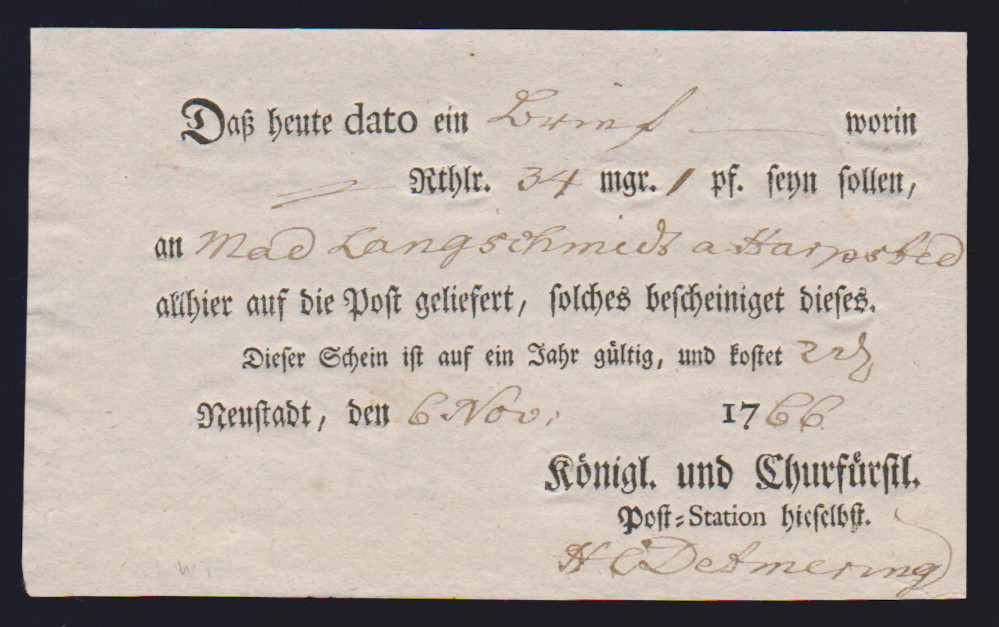 Daß heute dato ein Brief — worin
— Rthlr. 34 mgr. 1 pf. seyn sollen,
an Mad Langschmidt a Harpsted
allhier auf die Post geliefert, solches bescheiniget dieses.
Dieser Schein ist auf ein Jahr gültig, und kostet
Neustadt, den 6 Nov: 1766
Königl. und Churfürstl.
Post=Station hieselbst.